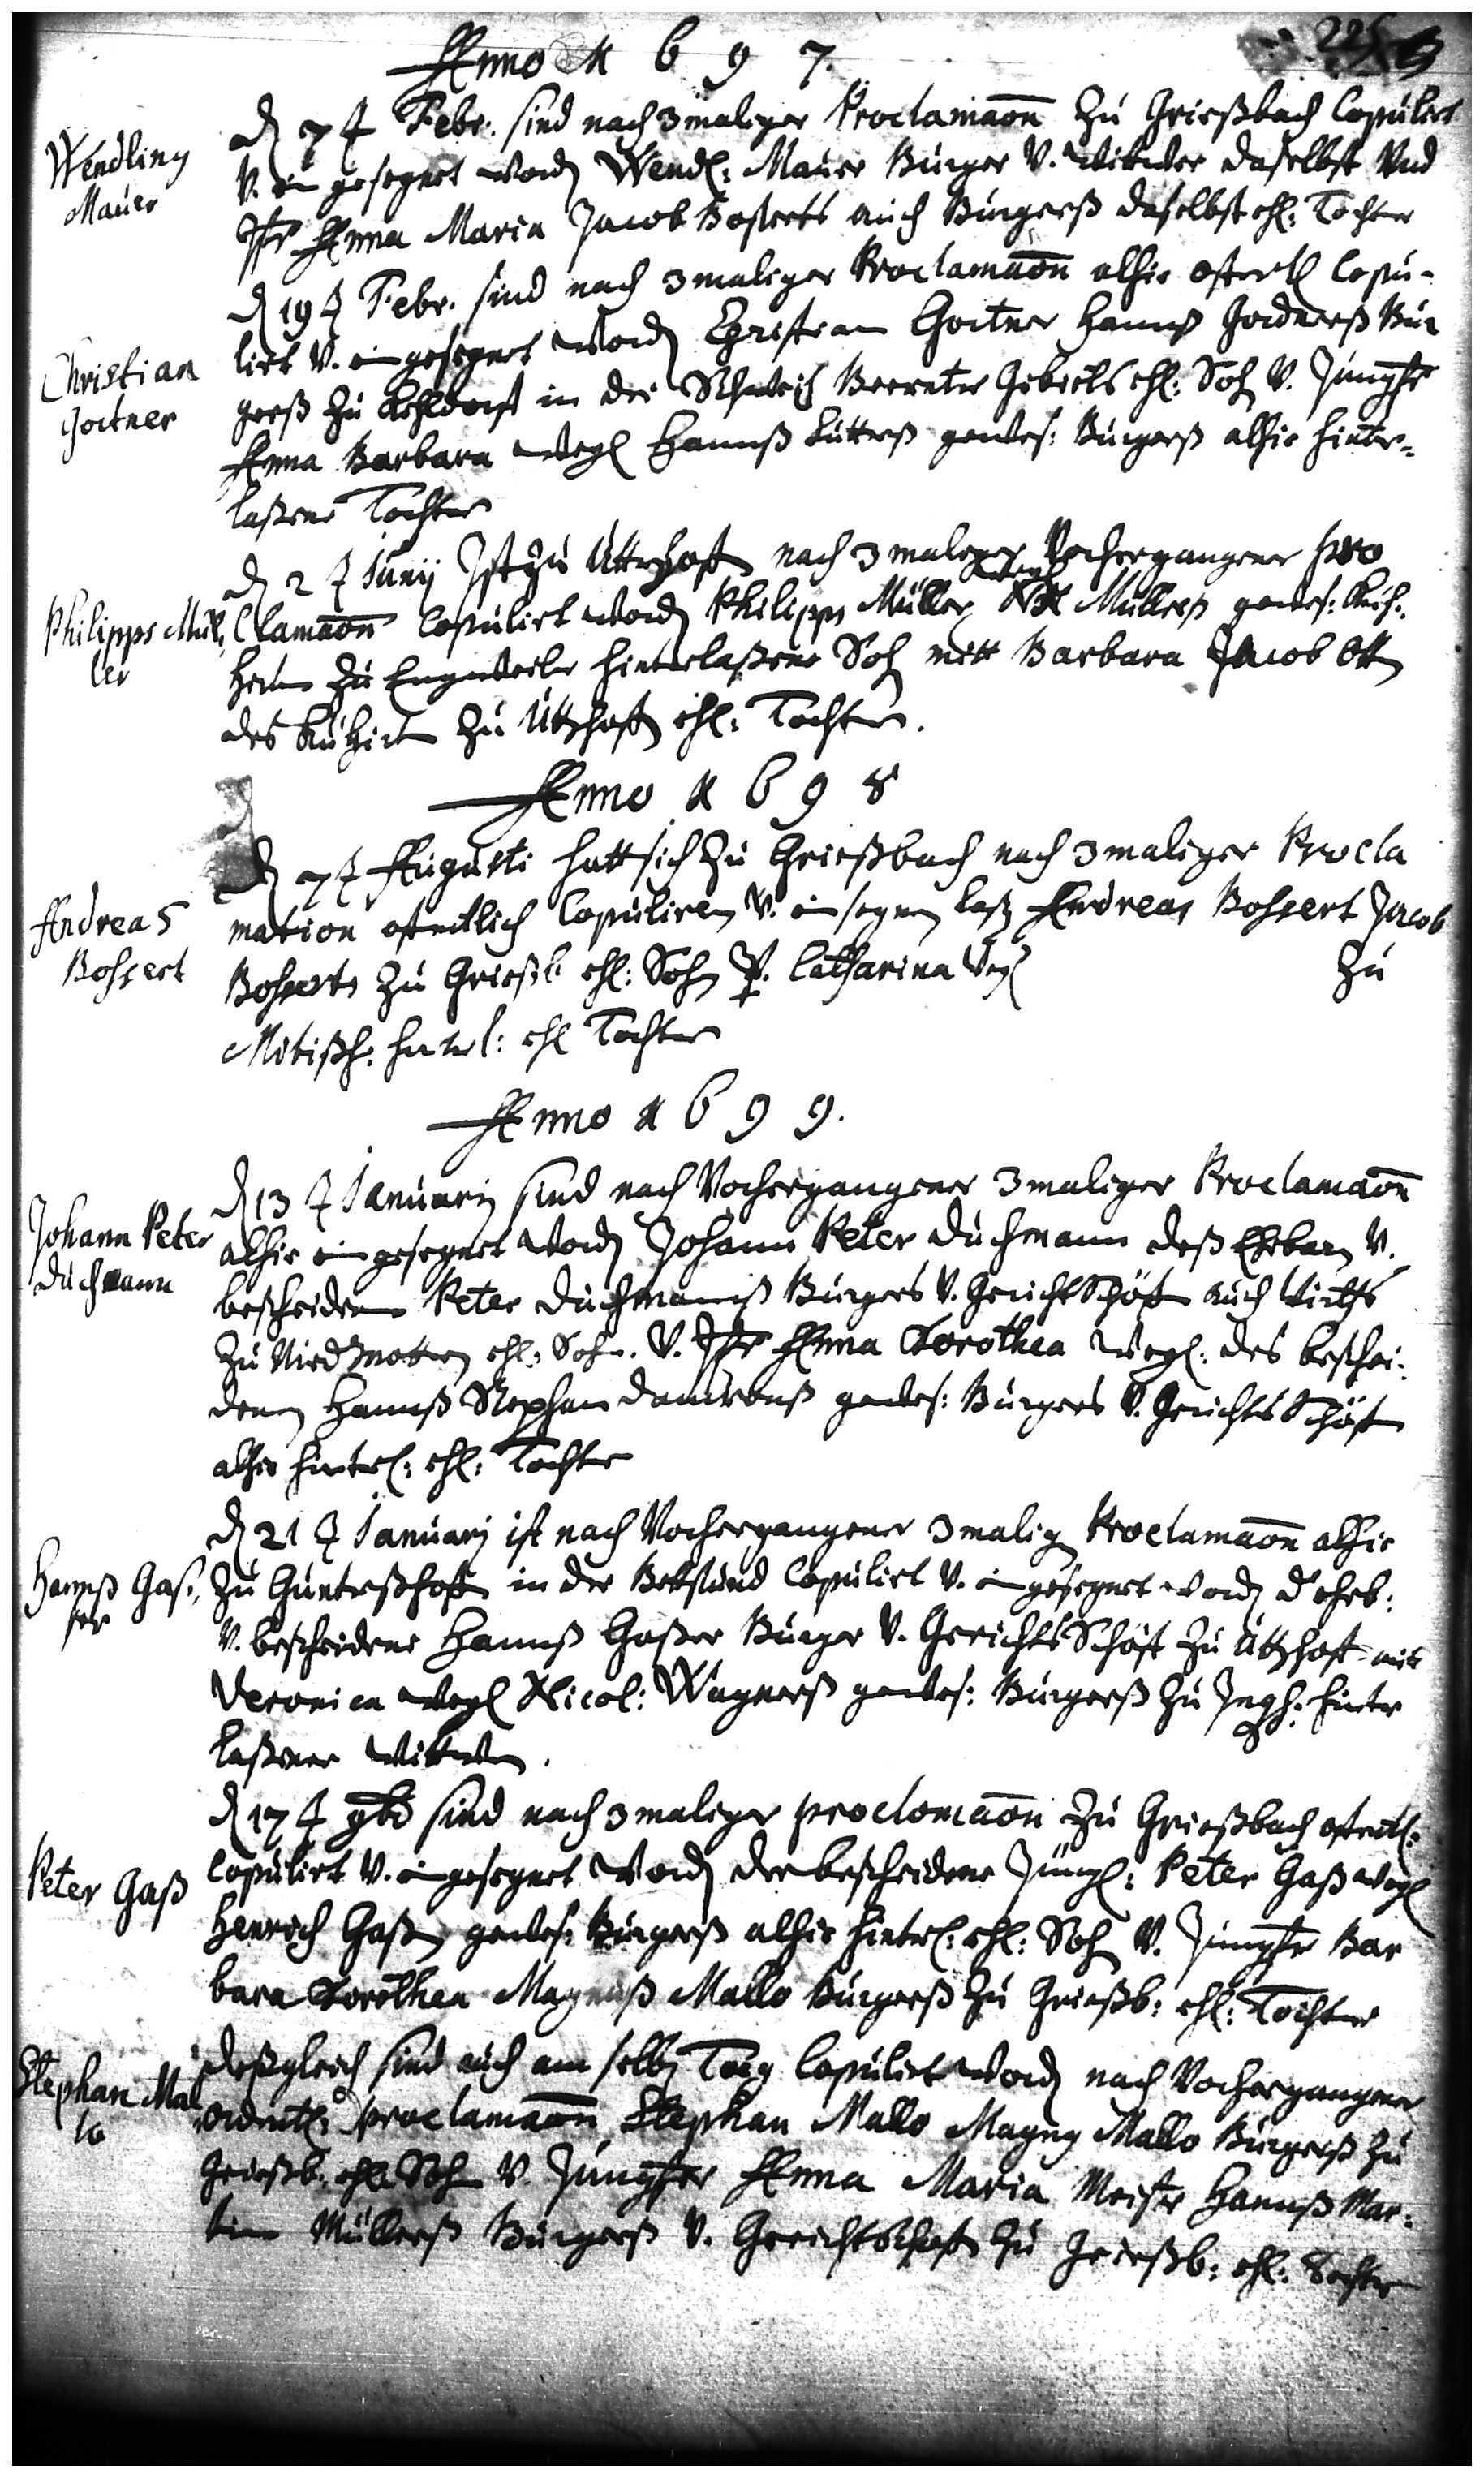 Anno 1697.
Wendling
Mauer
d 7t Febr. sind nach 3maliger Proclamaõn Zu Grießbach Copulirt
V. ein gesegnet word Wendl: Maurer Burger V. Wittwer daselbst Vnd
Jfr Anna Maria Jacob Bosserts auch Burgerß daselbst ehl: Tochter
Christian
Goetner
d 19t Febr. sind nach 3maliger Proclamaõn alhie Copu-
lirt V. eingesegnet word Christian Goetner Hannß Goetnerß Bur
gerß Zu in der Schweitz Gebiets ehl: Soh V. Jungfr
Anna Barbara Weyl Hannß geweß: Burgerß alhie hinter-
laßene Tochter
Philipps Mül,
ler
d 2t Junij Ist Zu Uttenhoffen nach 3maliger Vorhergangener pro
clamaõn Copulirt word Philipps Müller Müllerß geweß:
Zu Engweiler hinterlaßener Soh mitt Barbara Jacob Ott
des Kuhhirten Zu Uttenhoffen ehl: Tochter.
Anno 1698
Andreas
Bossert
d 7t Augusti hatt sich Zu Grießbach nach 3maliger Procla
mation ofentlich Copuliren V. einsegnen laß Andreas Bossert Jacob
Bosserts Zu Grießb. ehl: Sohn V. Catharina Weyl Zu
Mitißh: hinterl: ehl Tochter
Anno 1699.
Johann Peter
Duchmann
d 13t Januarij sind nach Vorhergangener 3maliger Proclamaõn
alhie eingesegnet word Johann Peter Duchmann deß Ehrbarn V.
bescheidenen Peter Duchmannß Burgers V. Gerichtschöffen auch Wirths
Zu Nidermottern ehl: Sohn. V. Jfr Anna Dorothea Weyl. des beschei-
denen Hannß Stephan geweß: Burgers V. GerichtsSchöffen
alhie hinterl: ehl: Tochter
Hannß Gaß,
ser
d 21t Januarj ist nach Vorhergangener 3malig Proclamaõn alhie
Zu Guntershoffen in der Bettstund Copulirt V. eingesegnet word d' ehrb:
V. bescheidene Hannß Gaßer Burger V. GerichtsSchöff Zu Uttenhoffen mit
Veronica Weyl Nicol: Wagnerß geweß: Burgerß Zu Ingh: hinter
laßener Wittwen.
Peter Gaß
d 17t 9br sind nach 3maliger proclomaõn Zu Grießbach ofentl:
Copulirt V. eingesegnet word der bescheidene Jungl: Peter Gaß Weyl
Henrich Gaßen geweß: Burgerß alhie hinterl: ehl: Soh V. Jungfr Bar
bara Dorothea Magnuß Mallo Burgerß Zu Grießb: ehl: Tochter
Stephan Mal
lo
deßgleich sind auch am selb Tag Copulirt word nach Vorhergangener
ordentl: proclamaõn Stephan Mallo Magny Mallo Burgerß Zu
Grießb: ehl. Sohn V. Jungfer Anna Maria Meister Hannß Mar-
tin Müllerß Burgerß V. Gerichtschöffen Zu Grießb: ehl: Tochter